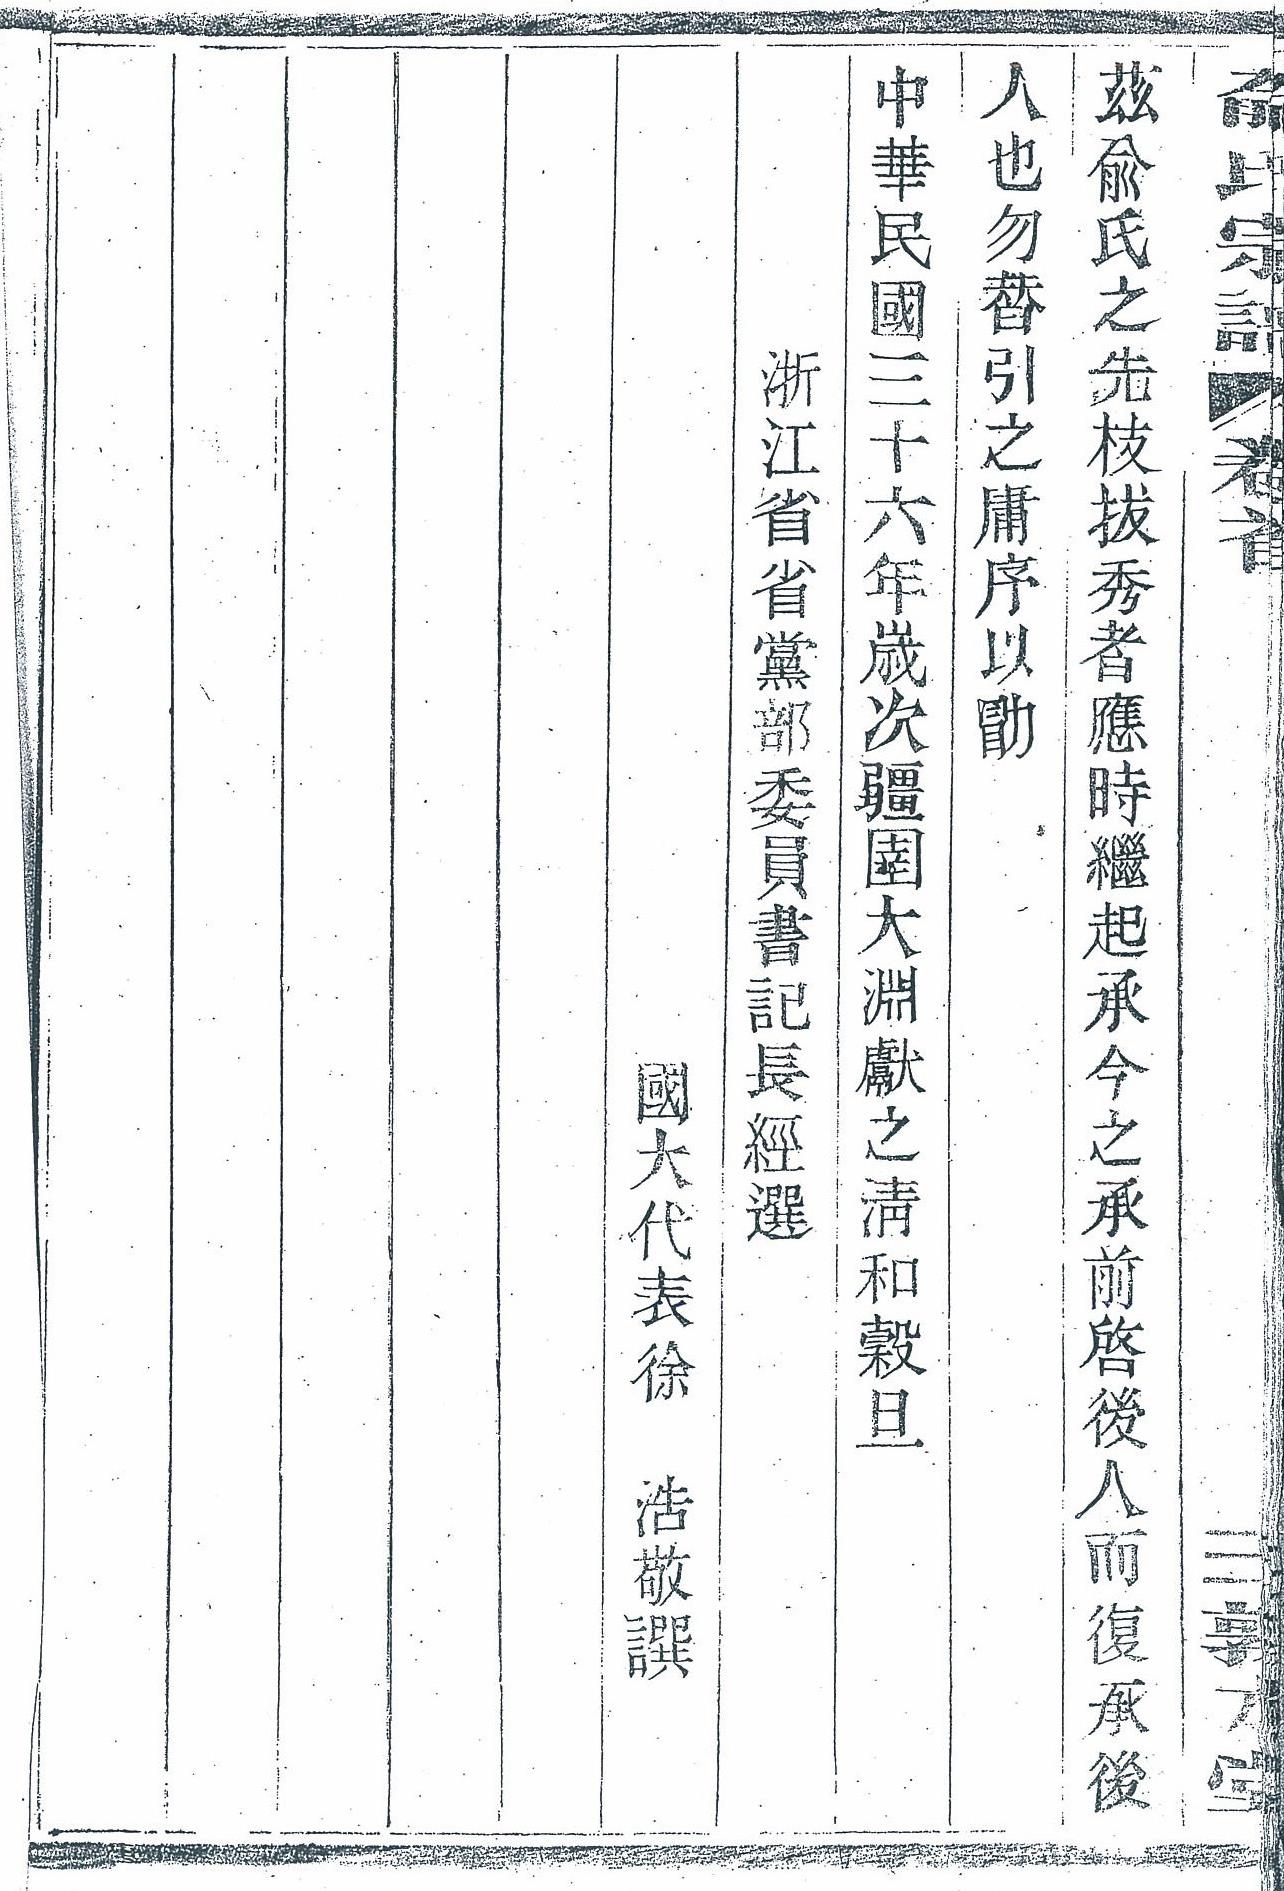 俞氏宗譜 卷首 三 敦本堂
茲俞氏之先枝拔秀者應時繼起承今之承前啓後人而復承後
人也勿替引之庸序以勖
中華民國三十六年歲次彊圉大淵獻之淸和穀旦
浙江省省黨部委員書記長經選
國大代表徐 浩敬譔